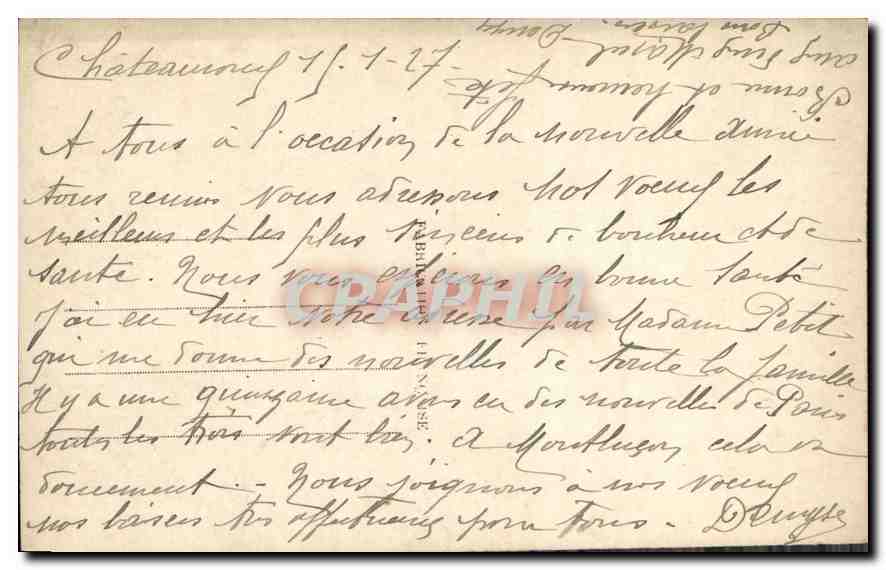 15-1-27-
A tous à l'occasion de la nouvelle Année
tous réunis vous adressons nos voeux les
meilleurs et les plus sincères de bonheur et de
santé. Nous vous en bonne santé
J'ai eu hier votre adresse par Madame Petit
qui me donne des nouvelles de toute la famille
Il y a une quinzaine avons eu des nouvelles de Paris
toutes les trois vont bien. A Montluçon cela va
doucement. - Nous joignons à nos voeux
nos baisers très affectueux pour tous -
Bonne et heureuse fête
FABRICATION FRANÇAISE
CPAPHIL